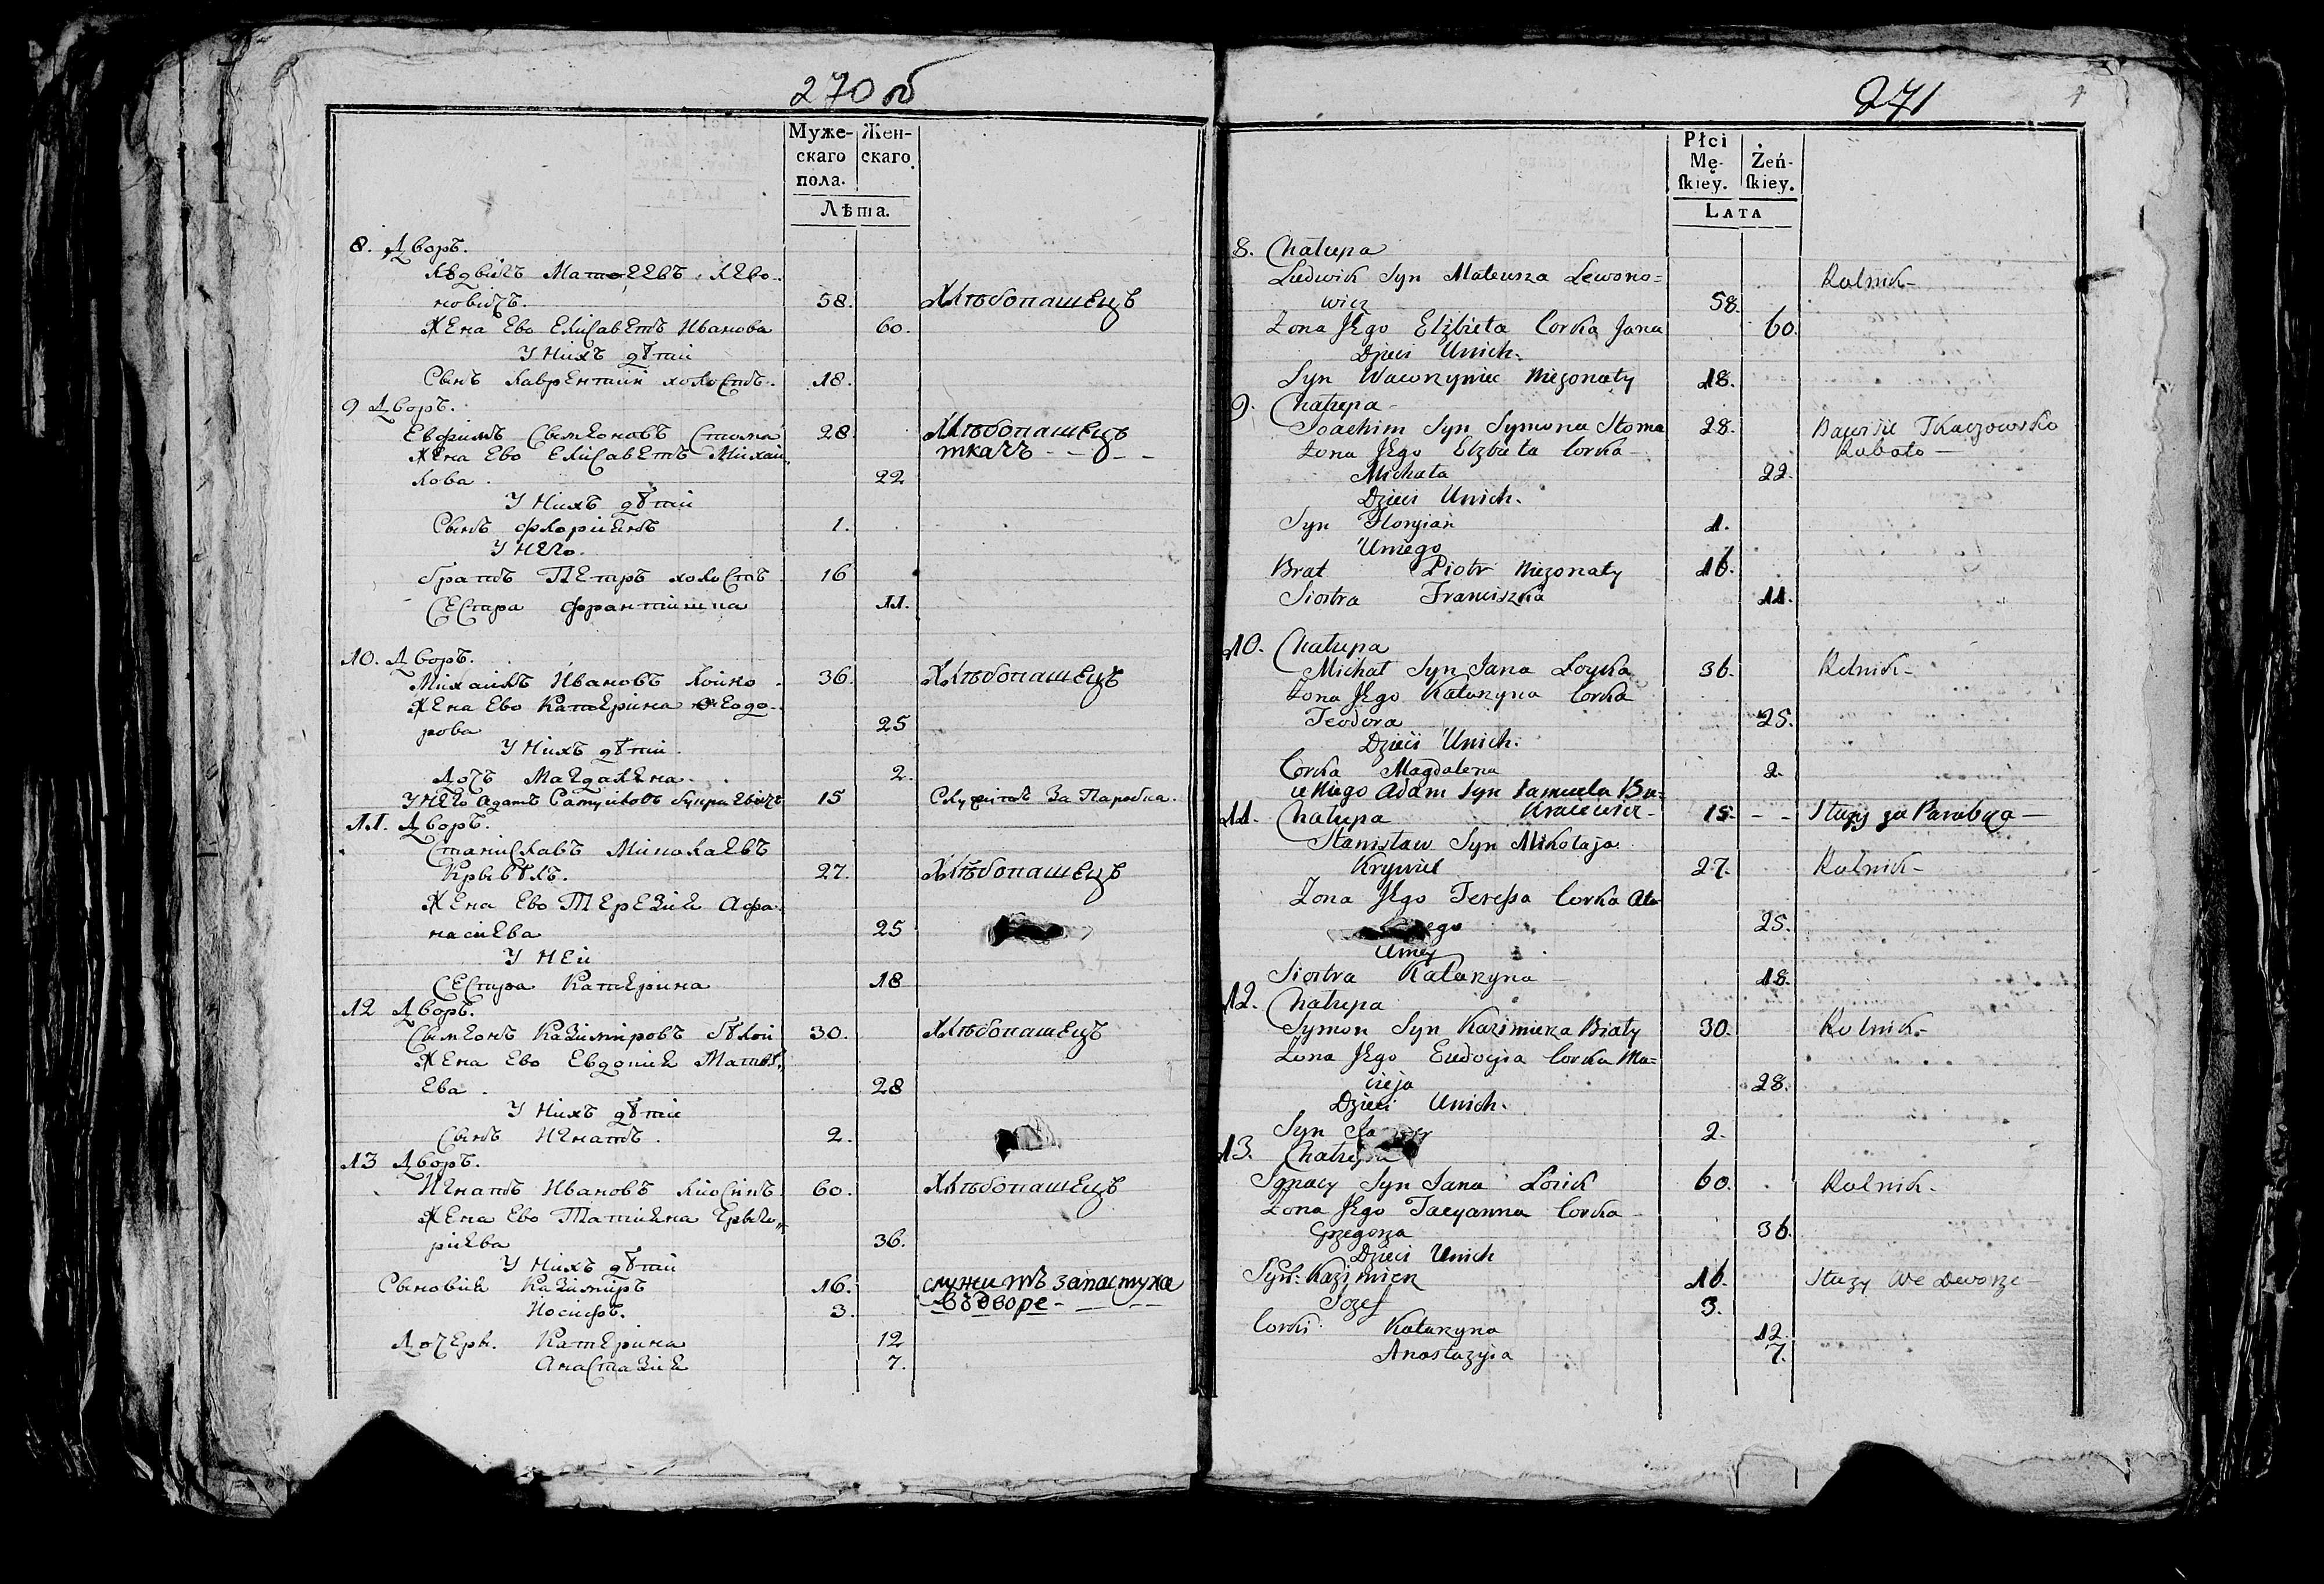 270 об
Муже-
скаго
пола.
Жен-
скаго.
Лѣта.
8. Дворъ.
Людвикъ Матѳеевъ Лево-
новичъ. 58. Хлѣбопашецъ
Жена Ево Елисаветъ Иванова 60.
У нихъ дѣти
Сынъ Лаврентий холостъ. 18.
9 Дворъ.
Евфимъ Сымоновъ Стома 28 Хлѣбопашецъ
Жена Ево Елисаветъ Михаи ткачъ - - -
лова. 22
У нихъ дѣти
Сынъ Флориянъ 1.
У него.
братъ Петръ холостъ 16
Сестра Франтишка 11.
10. Дворъ.
Михаилъ Ивановъ Лойко 36. Хлѣбопашецъ
Жена Ево Катерина Ѳеодо-
рова 25
У нихъ дѣти.
Дочъ Магдалена. 2.
У него Адамъ Самуиловъ 15 Служитъ за Паробка.
11. Дворъ.
Станиславъ Миколаевъ
Крывѣлъ. 27. Хлѣбопашецъ
Жена Ево Терезия Афа-
насиева 25
У ней
Сестра Катерина 18
12 Дворъ.
Сымонъ Казимировъ бѣлой 30. Хлѣбопашецъ
Жена Ево Евдокия Матвѣ
ева. 28
У нихъ дѣти
Сынъ Игнатъ. 2.
13 Дворъ.
Игнатъ Ивановъ 60. Хлѣбопашецъ
Жена Ево Татияна Грыго„
риева 36.
У нихъ дѣти
Сыновия Казимиръ 16. служитъ за пастуха
Иосифъ. 3. въ дворе - - -
Дочеры. Катерина 12
Анастазия 7.
271
Płci
Mę-
ſkiey.
Żeń-
ſkiey.
LATA
8. Chałupa
Ludwik Syn Mateusza Lewono= Rolnik-
wicz 58.
Zona Jego Elżbieta Corka Jana 60.
Dzieci Unich.
Syn Wawrzyniec Niezonaty 18.
9. Chałupa-
Joachim Syn Symona Stoma 28. Bawi się Tkaczowsko
Zona Jego Elzbieta Corka- Roboto-
Michała 22.
Dzieci Unich.
Syn Floryian 1.
Uniego
Brat Piotr Niezonaty 16.
Siostra Franciszka 11.
10. Chałupa
Michał Syn Jana Łoyka 36. Rolnik-
Zona Jego Katarzyna Corka
Teodora 25.
Dzieci Unich.
Corka Magdalena 2.
u Niego Adam Syn Samuela Bu=
11. Chałupa 15. - - Słuzy za Parobka-
Stanisław Syn Mikołaja
Krywiel 27. Rolnik-
Zona Jego Teressa Corka
25.
Uniey
Siostra Katarzyna 18.
12. Chałupa
Symon Syn Kazimierza Biały 30. Rolnik-
Zona Jego Eudocyia Corka Ma=
cieja 28.
Dzieci Unich.
Syn 2.
13. Chałupa
Ignacy Syn Jana 60. Rolnik-
Zona Jego Tacyanna Corka
Grzegorza 36.
Dzieci Unich
Syn: Kazimierz 16. Słuzy we Dworze
Jozef 3.
Corki Katarzyna 12.
Anastazyia 7.